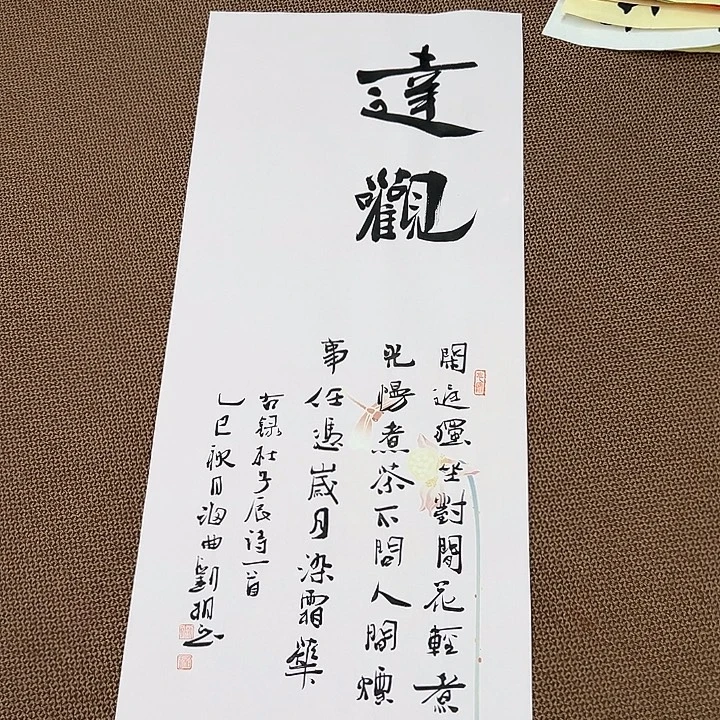 達觀
閑庭獨坐對閒花輕煮
光慢煮茶不問人間煙
事任憑歲月染霜華
右録杜子辰诗一首
乙巳秋月海曲劉